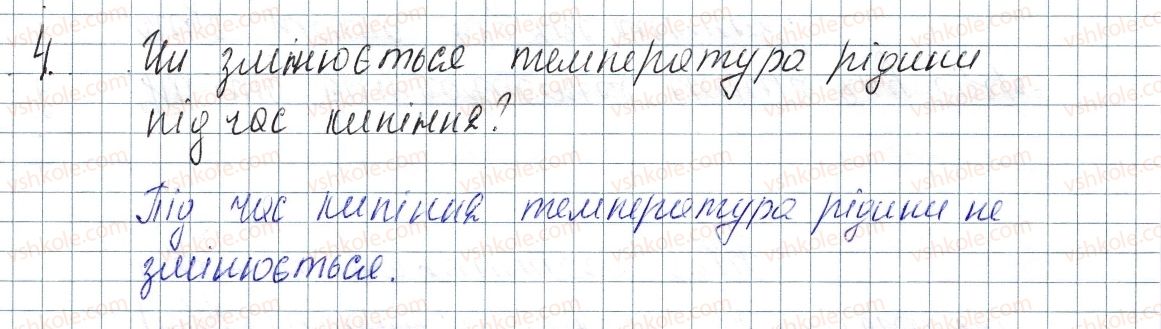 4. Чи змінюється температура рідини
під час кипіння?
Під час кипіння температура рідини не
змінюється.